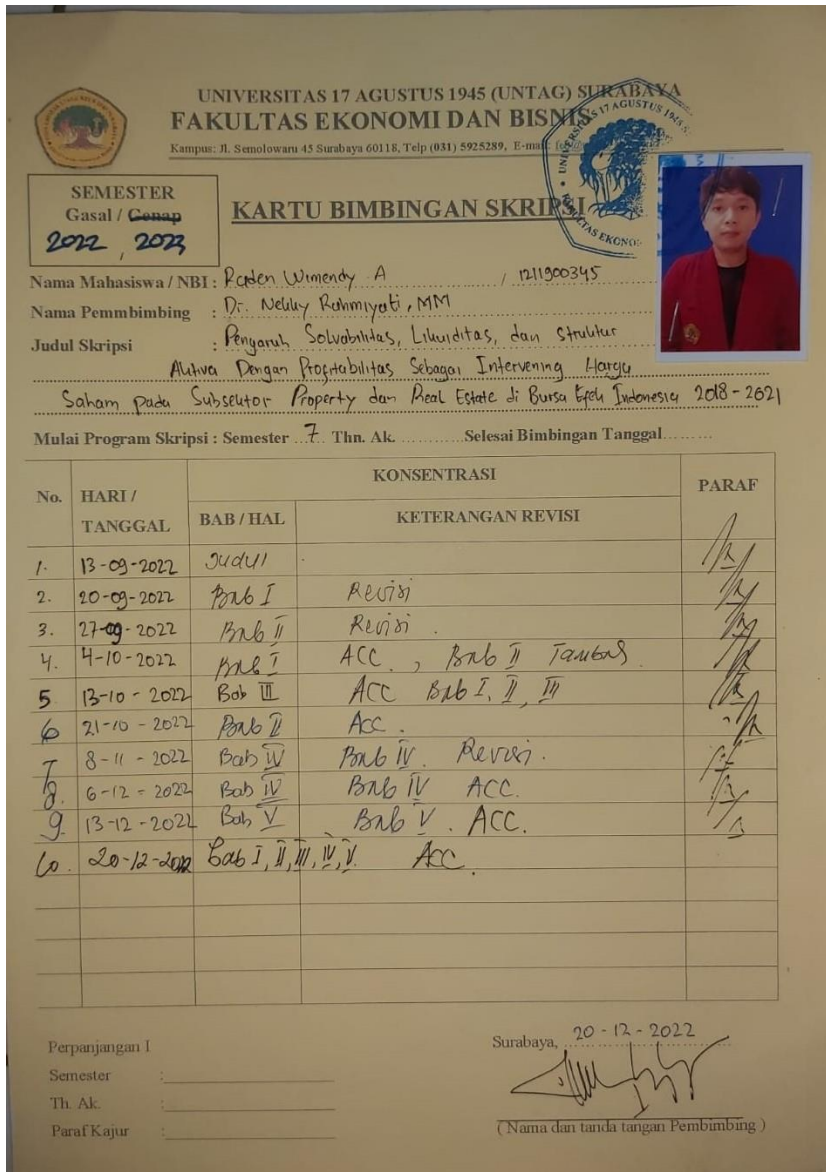 UNIVERSITAS 17 AGUSTUS 1945 (UNTAG) SURABAYA
FAKULTAS EKONOMI DAN BISNIS
Kampus: Jl. Semolowaru 45 Surabaya 60118, Telp (031) 5925289, E-mail:
SEMESTER
Gasal / Genap
2022, 2023
KARTU BIMBINGAN SKRIPSI
Nama Mahasiswa / NBI : Raden Wimendy A / 1211900345
Nama Pemmbimbing : Dr. Nekky Rahmiyati, MM
Judul Skripsi : Pengaruh Solvabilitas, Likuiditas, dan Struktur
Aktiva Dengan Profitabilitas Sebagai Intervening Harga
Saham pada Subsektor Property dan Real Estate di Bursa Efek Indonesia 2018 - 2021
Mulai Program Skripsi : Semester 7 Thn. Ak. ............Selesai Bimbingan Tanggal.........
No. HARI / TANGGAL KONSENTRASI PARAF
BAB / HAL KETERANGAN REVISI
1. 13-09-2022 Judul
2. 20-09-2022 Bab I Revisi
3. 27-09-2022 Bab II Revisi.
4. 4-10-2022 Bab I ACC, Bab II
5 13-10-2022 Bab III ACC Bab I, II, III
6 21-10-2022 Bab II Acc.
7 8-11-2022 Bab IV Bab IV. Revisi.
8. 6-12-2022 Bab IV Bab IV ACC.
9. 13-12-2022 Bab V Bab V. ACC.
10. 20-12-2022 Bab I, II, III, IV, V. Acc.
Perpanjangan I
Semester :
Th. Ak. :
Paraf Kajur :
Surabaya, 20-12-2022
(Nama dan tanda tangan Pembimbing)